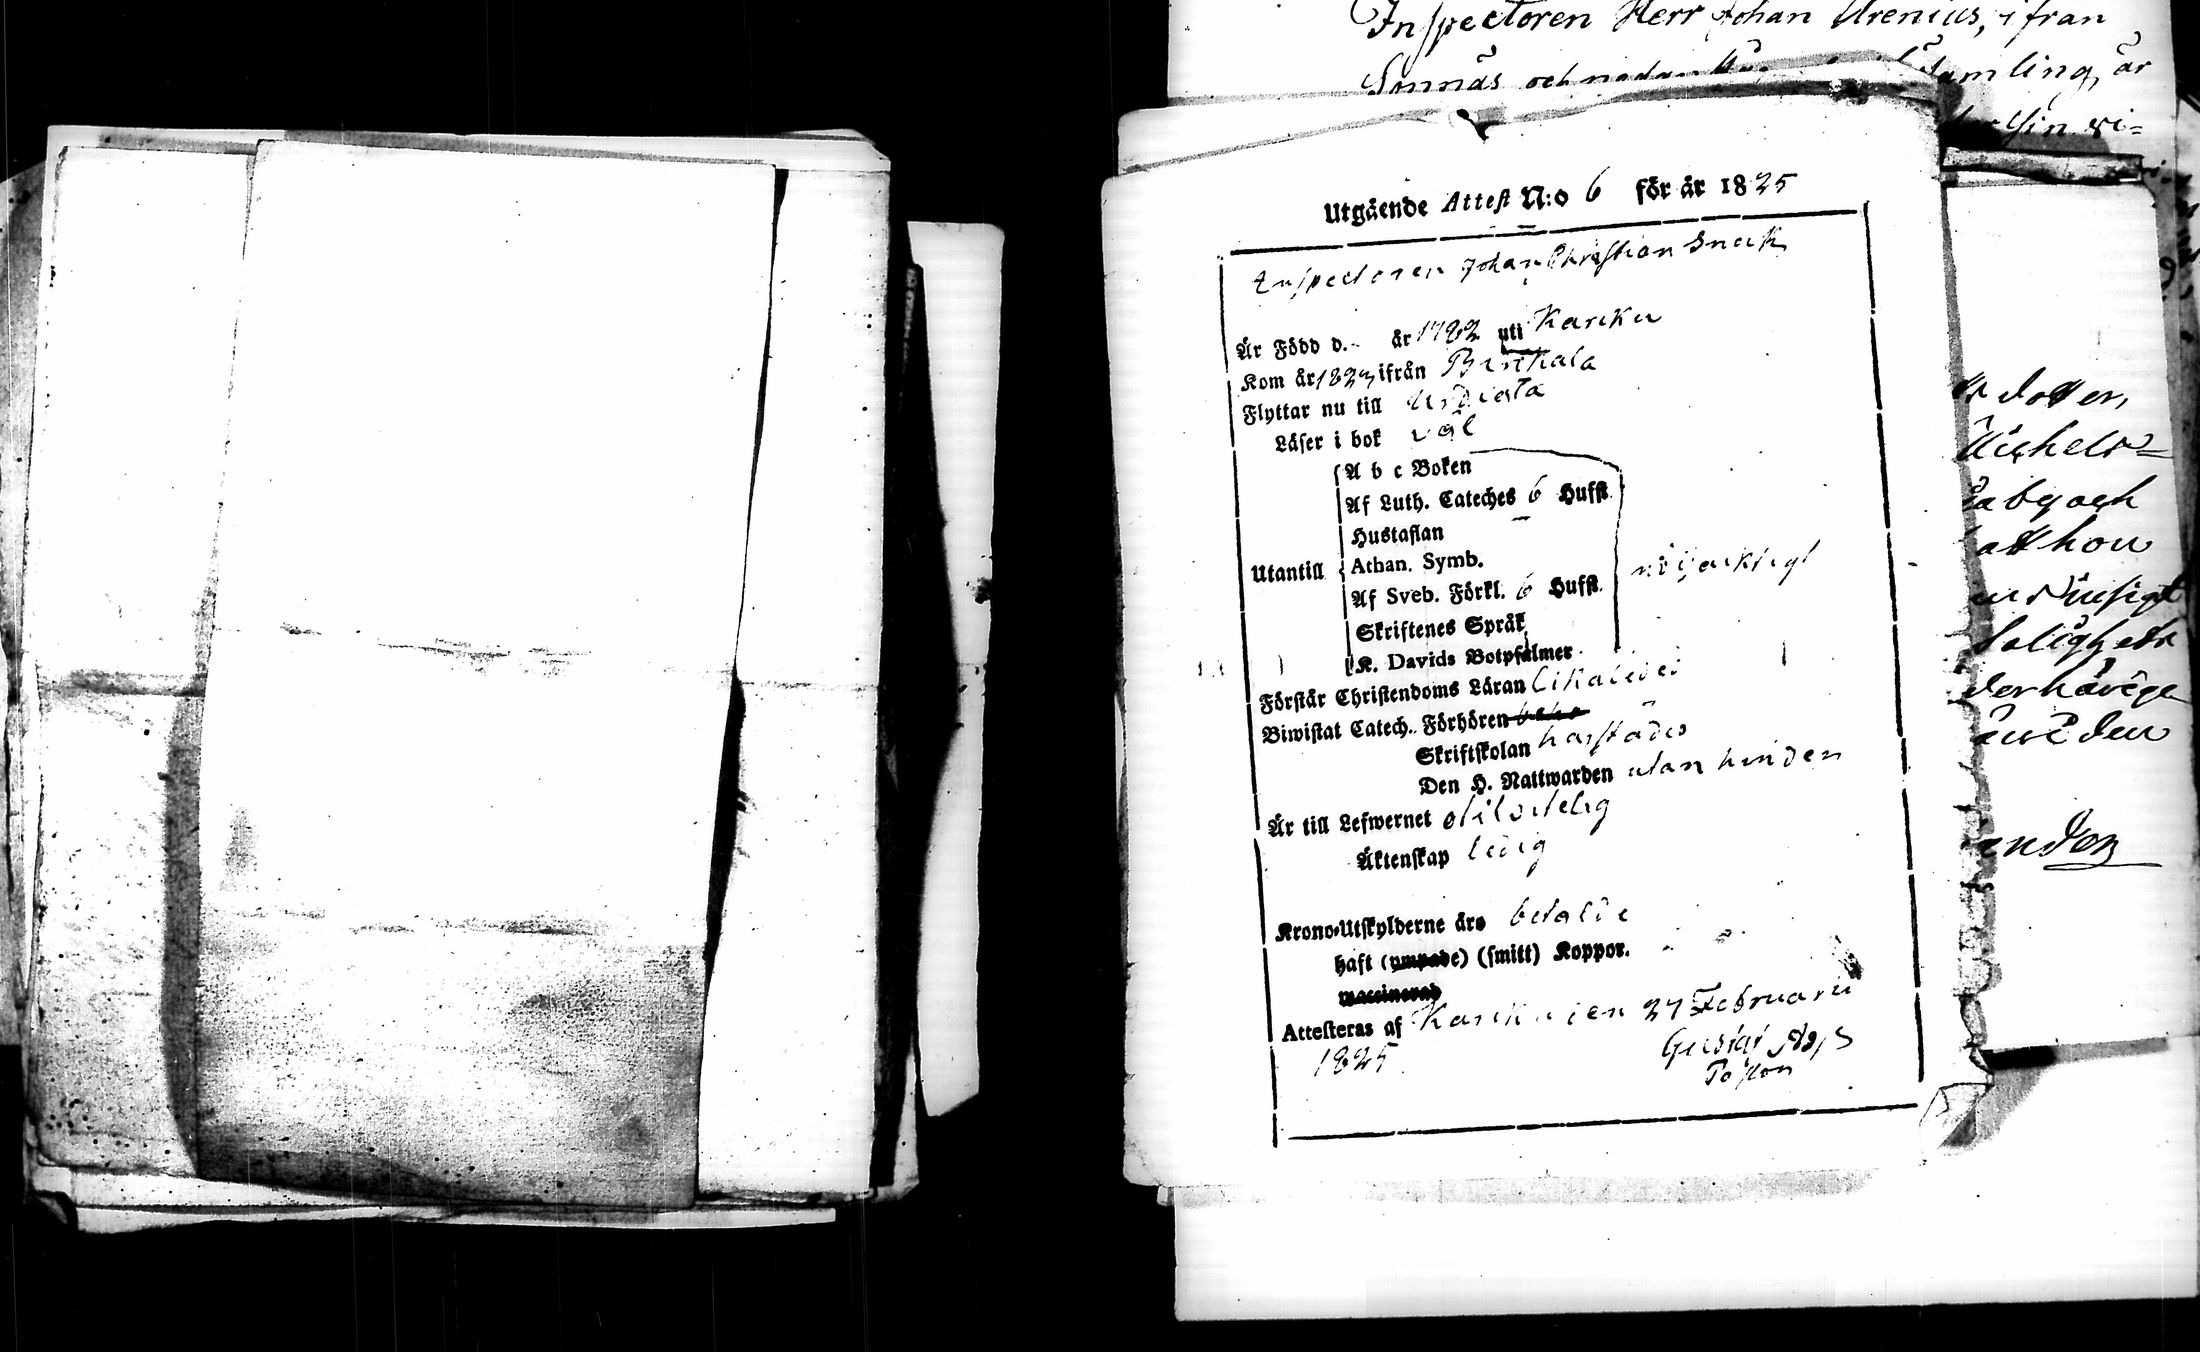 Inspectoren Herr Johan Urenius, ifrån
Sonnäs och församling, är
sin vi=
Utgående Attest N:o 6 för år 1825
Inspectoren Johan Christian Sneck
Är Född d. - år 1782 uti Karcku
Kom år 1823 ifrån Birkkala
Flyttar nu till Urdiala
Läser i bok väl
A b c Boken
Af Luth. Cateches 6 Hufst.
Hustaflan
Utantill Athan. Symb. nöijacktigt
Af Sveb. Förkl. 6 Hufst.
Skriftenes Språk
K. Davids Botpsalmer
Förstår Christendoms Läran likaledes
Biwistat Catech. Förhören
Skriftskolan härstädes
Den H. Nattwarden utan hinder
Är till Lefwernet otilvitelig
Äktenskap ledig
Krono-Utskylderne äro betalde
haft (ympade) (smitt) Koppor.
waccinerad
Attesteras af Karcku den 27 Februarii
1825
Gustaf
Pastor
dotter,
Michels=
by och
att hon
salighets